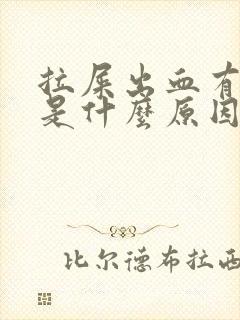 拉屎出血有
是什麼原因
比尔德布拉西